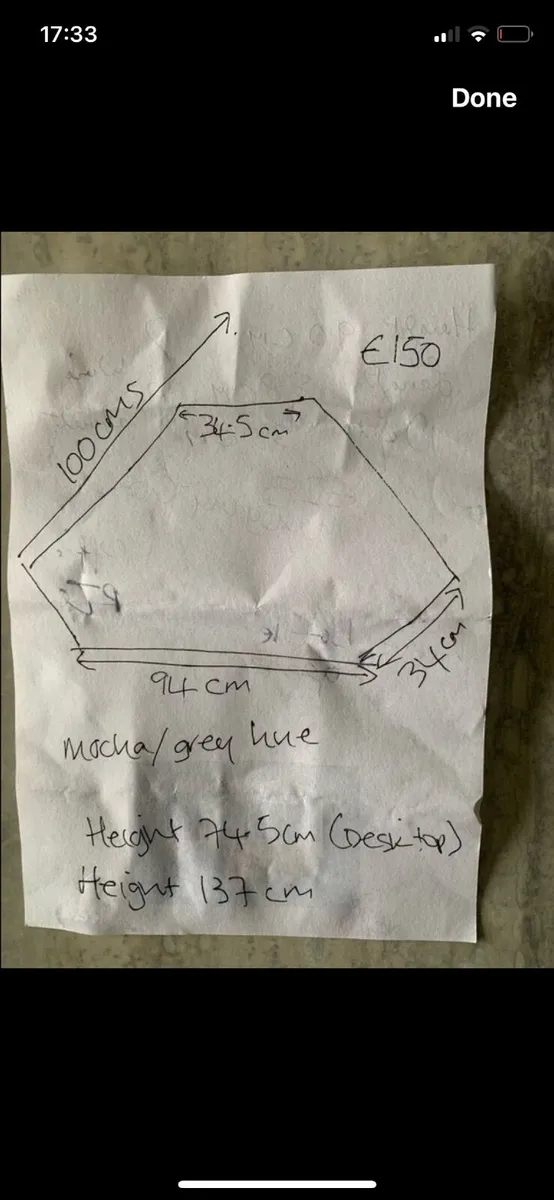 17:33
Done
€150
100cms
34.5cm
34cm
94 cm
mocha/grey hue
Height 74.5cm (Desktop)
Height 137cm